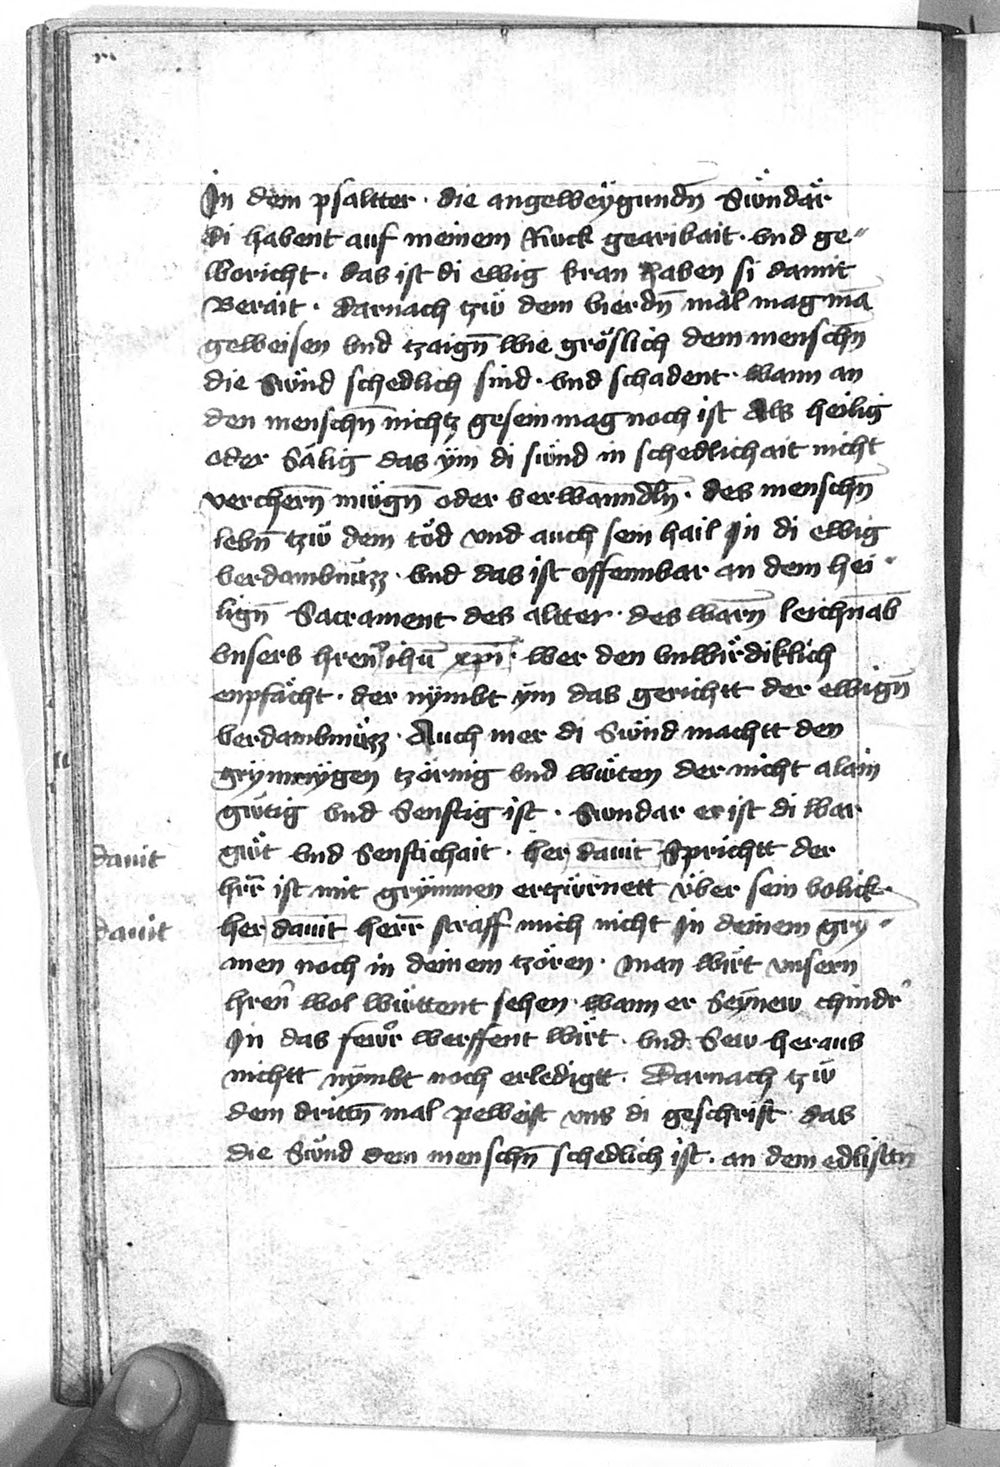 In dem psaltter · die angeweÿgundn̄ Swͤndaͤr
di habent auf meinem Ruck gearibait · vnd ge⸗
woricht · das ist di ewig kran haben si damit
Berait · darnach tzwͤ dem vierdn̄ mal mag mā
geweisen vnd tzaign̄ wie groͤslich dem menschn̄
die Swͤnd schedlich sind · vnd schadent · wann an
den menschn̄ nichtz gesein mag noch ist Als heilig
oder Saͤlig das ÿm di swͤnd in schedlichait nicht
verchern̄ muͤgn̄ oder verwanndln̄ · des menschn̄
lebn̄ tzwͤ dem tod vnd auch sein hail In di ewig
verdambnuͤzz · vnd das ist offennbar an dem hei⸗
lign̄ Sacrament des altter · des warn̄ leichnab
vnsers hren̄ ihū xpī · wer den vnwirdiklich
enpfaͤcht · der nymbt ÿm das gerichtt der ewign̄
verdambnuͤzz · Auch mer di Swͤnd machtt den
grÿmmÿgen tzornig vnd wuͤten der nicht alain
gwͤtig vnd Senftig ist · Swndar er ist di war
gwͤt vnd Senftichait · her dauit Sprichtt der
hrr̄ ist mit grÿmmen ertzurnett vͤber sein volick ·
her dauit herr̄ straff mich nicht In deinem gry⸗
men noch in deinem tzoren · man wirt vnsern
hren̄ wol wuͤttent sehen · wann er Seÿnew chindr
In das fewr werffent wirt · vnd Sew heraus
nichtt nymbt noch erledigtt · Darnach tzwͤ
dem drittn̄ mal peweist vns di geschrift das
die Swnd dem menschn̄ schedlich ist · an dem edlistn̄
dauit
dauit